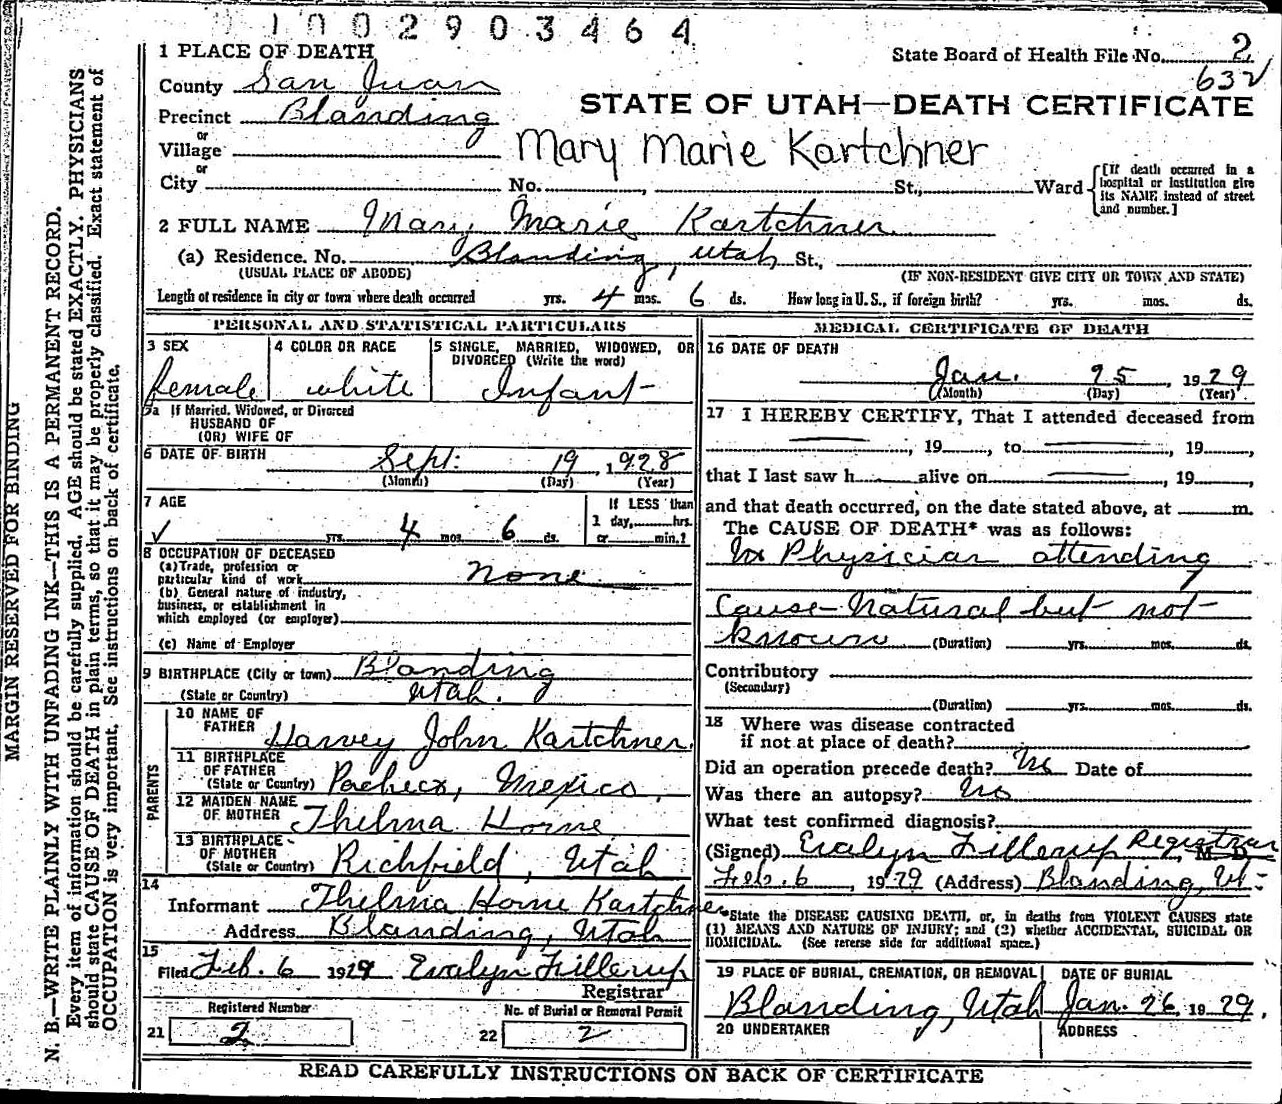 1002903464
1 PLACE OF DEATH
State Board of Health File No. 2
632
County San Juan
STATE OF UTAH—DEATH CERTIFICATE
Precinct Blanding
or
Village
Mary Marie Kartchner
or
City No. , St., Ward [If death occurred in a hospital or institution give its NAME instead of street and number.]
2 FULL NAME Mary Marie Kartchner
(a) Residence. No. Blanding, Utah St.,
(USUAL PLACE OF ABODE) (IF NON-RESIDENT GIVE CITY OR TOWN AND STATE)
Length of residence in city or town where death occurred yrs. 4 mos. 6 ds. How long in U.S., if foreign birth? yrs. mos. ds.
PERSONAL AND STATISTICAL PARTICULARS
3 SEX
female
4 COLOR OR RACE
white
5 SINGLE, MARRIED, WIDOWED, OR
DIVORCED (Write the word)
Infant
5a If Married, Widowed, or Divorced
HUSBAND OF
(OR) WIFE OF
6 DATE OF BIRTH Sept. 19, 1928
(Month) (Day) (Year)
7 AGE
yrs. 4 mos. 6 ds.
If LESS than
1 day, hrs.
or min.?
8 OCCUPATION OF DECEASED
(a) Trade, profession or
particular kind of work none
(b) General nature of industry,
business, or establishment in
which employed (or employer)
(c) Name of Employer
9 BIRTHPLACE (City or town) Blanding
(State or Country) Utah.
PARENTS
10 NAME OF
FATHER Harvey John Kartchner
11 BIRTHPLACE
OF FATHER
(State or Country) Pacheco, Mexico
12 MAIDEN NAME
OF MOTHER Thelma Horne
13 BIRTHPLACE
OF MOTHER
(State or Country) Richfield, Utah
14
Informant Thelma Horne Kartchner
Address Blanding, Utah
15
Filed Feb. 6 1929 Evalyn Fillerup
Registrar
Registered Number
21 2
No. of Burial or Removal Permit
22 2
MEDICAL CERTIFICATE OF DEATH
16 DATE OF DEATH
Jan. 25, 1929
(Month) (Day) (Year)
17 I HEREBY CERTIFY, That I attended deceased from
, 19 , to , 19 ,
that I last saw h alive on , 19 ,
and that death occurred, on the date stated above, at m.
The CAUSE OF DEATH* was as follows:
No Physician attending
Cause—Natural but not
known (Duration) yrs. mos. ds.
Contributory
(Secondary)
(Duration) yrs. mos. ds.
18 Where was disease contracted
if not at place of death?
Did an operation precede death? No Date of
Was there an autopsy? No
What test confirmed diagnosis?
(Signed) Evalyn Fillerup Registrar, M. D.
Feb. 6, 1929 (Address) Blanding, Ut.
*State the DISEASE CAUSING DEATH, or, in deaths from VIOLENT CAUSES state
(1) MEANS AND NATURE OF INJURY; and (2) whether ACCIDENTAL, SUICIDAL OR
HOMICIDAL. (See reverse side for additional space.)
19 PLACE OF BURIAL, CREMATION, OR REMOVAL
Blanding, Utah
DATE OF BURIAL
Jan. 26, 1929.
20 UNDERTAKER
ADDRESS
READ CAREFULLY INSTRUCTIONS ON BACK OF CERTIFICATE
MARGIN RESERVED FOR BINDING
N. B.—WRITE PLAINLY WITH UNFADING INK—THIS IS A PERMANENT RECORD.
Every item of information should be carefully supplied. AGE should be stated EXACTLY. PHYSICIANS
should state CAUSE OF DEATH in plain terms, so that it may be properly classified. Exact statement of
OCCUPATION is very important. See instructions on back of certificate.